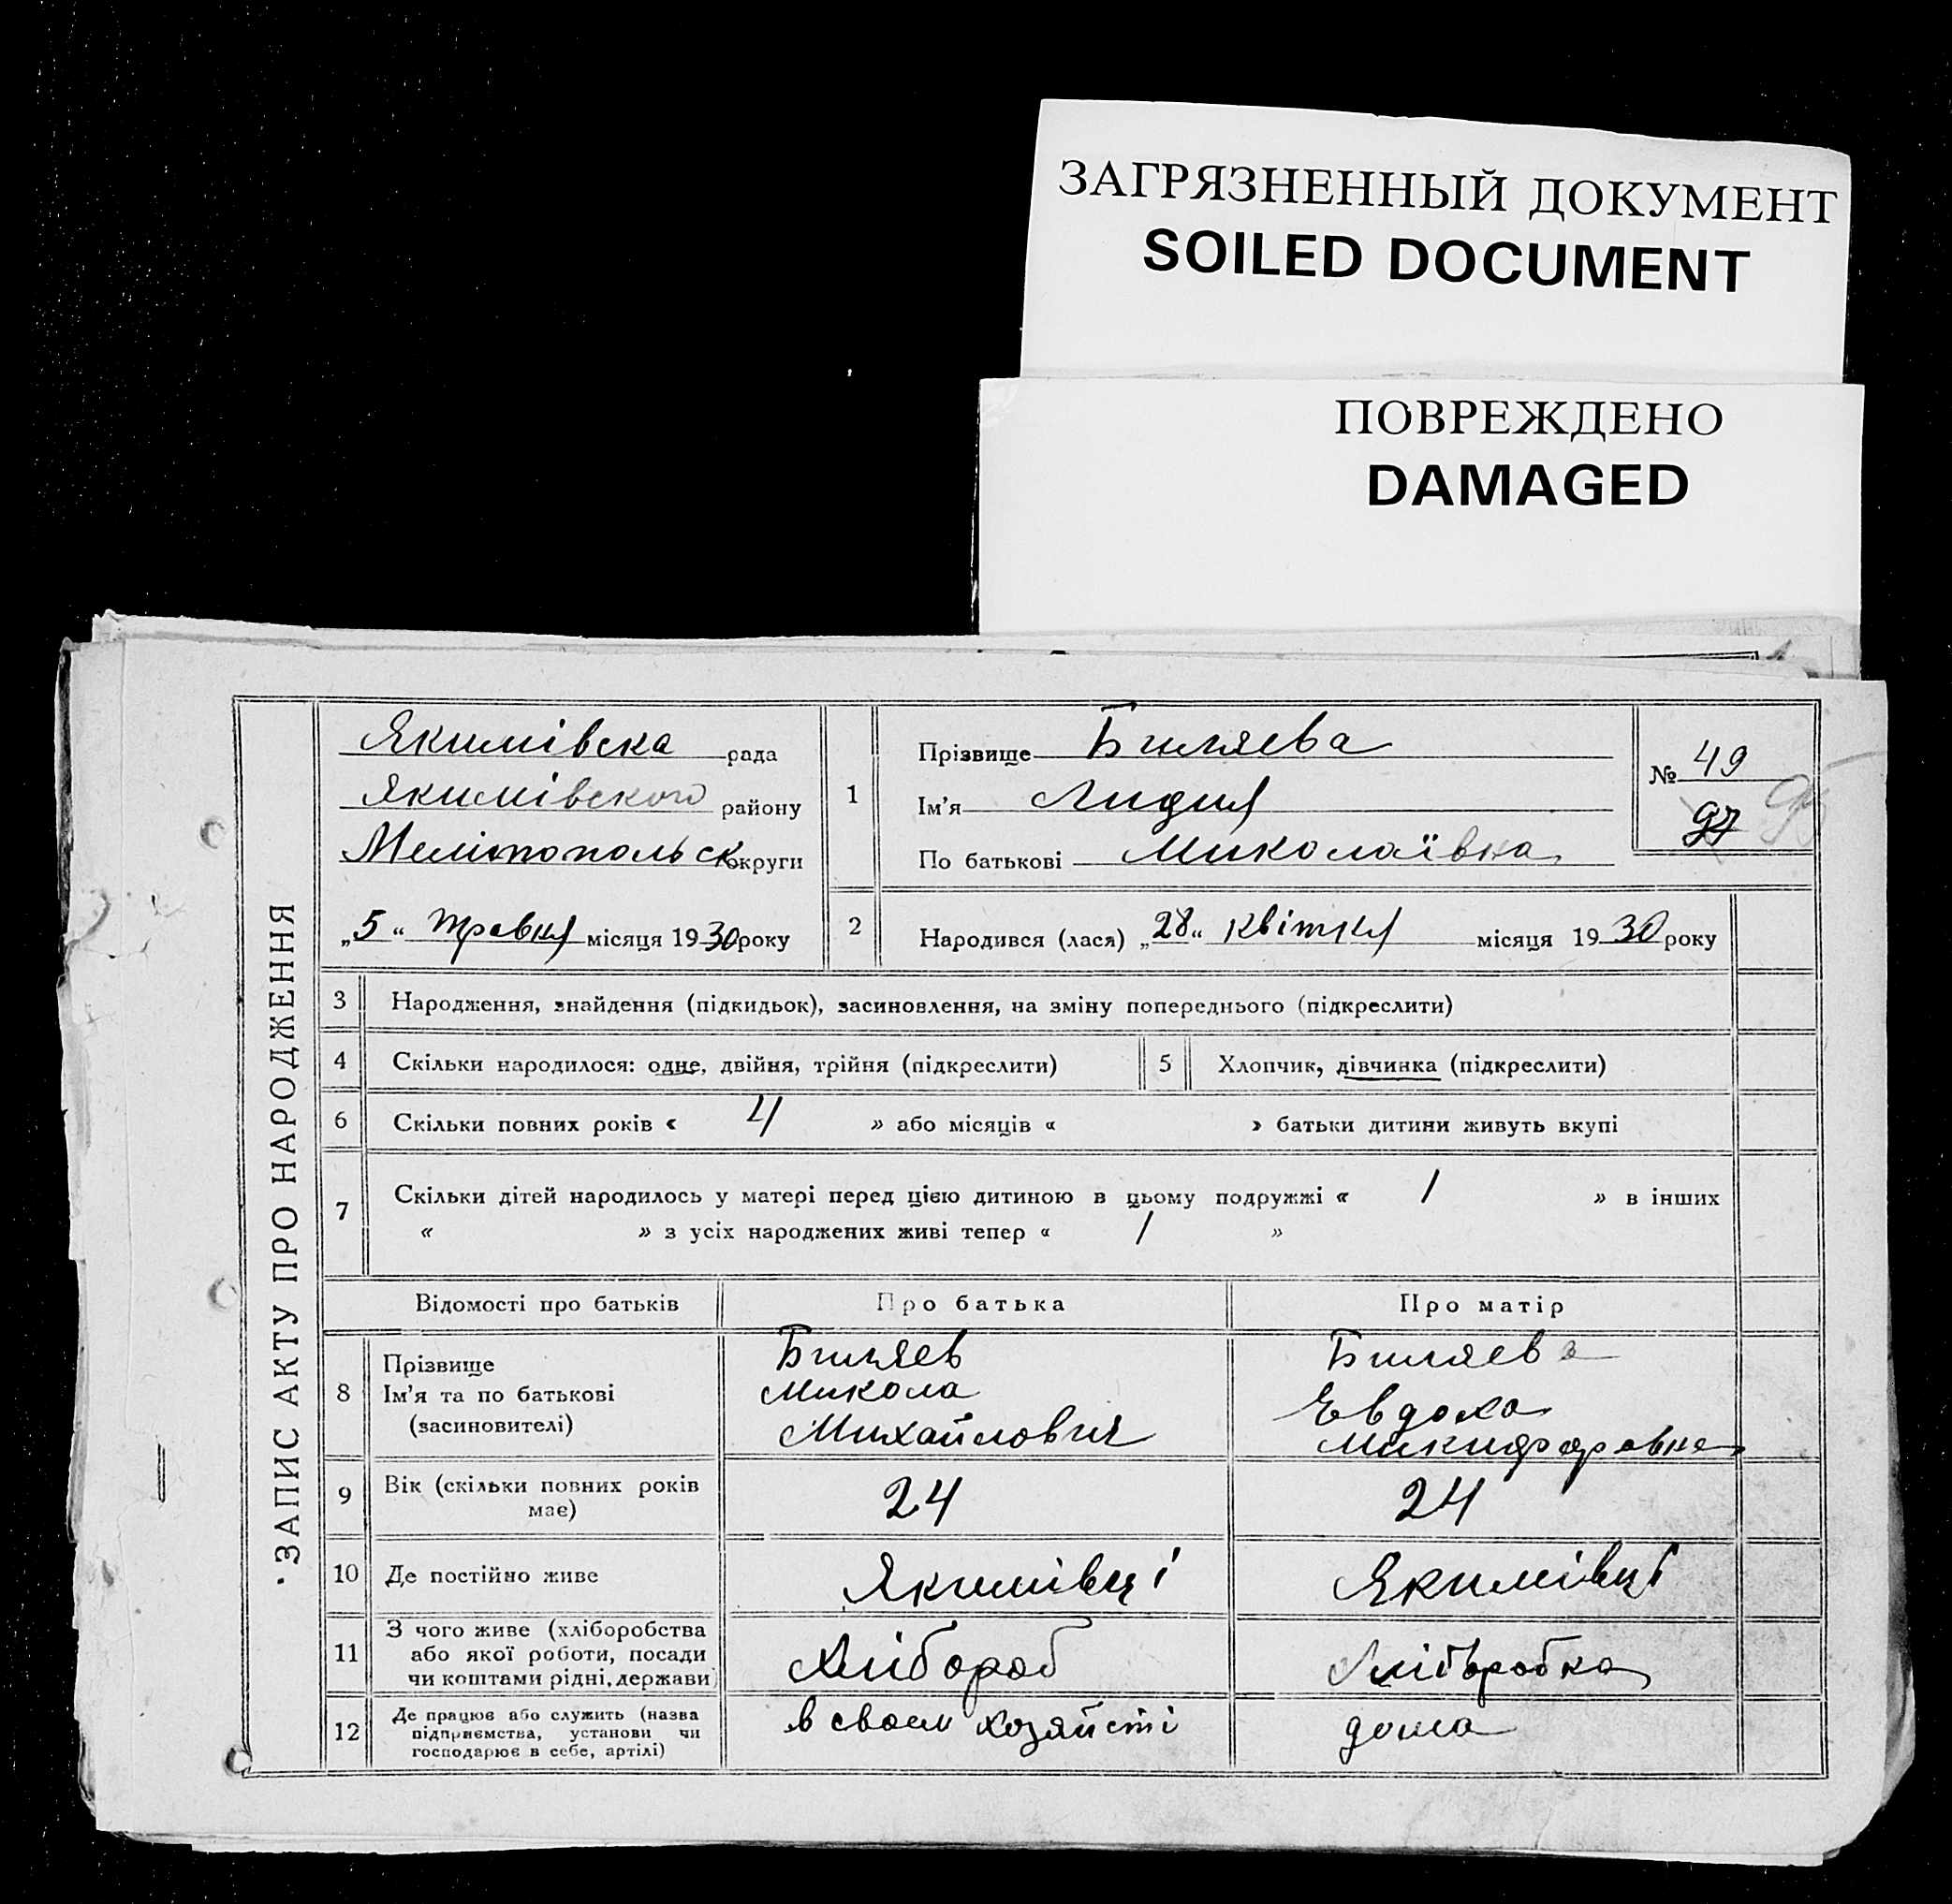 ЗАГРЯЗНЕННЫЙ ДОКУМЕНТ
SOILED DOCUMENT
ПОВРЕЖДЕНО
DAMAGED
ЗАПИС АКТУ ПРО НАРОДЖЕННЯ
Якимівська рада
Якимівського району
Мелітопольськ округи
„5“ травня місяця 1930 року
1
Прізвище Биляева
Ім'я Лидия
По батькові Миколаївна
№ 49
97
2
Народився (лася) „28“ квітня місяця 1930 року
3 Народження, знайдення (підкидьок), засиновлення, на зміну попереднього (підкреслити)
4 Скільки народилося: одне, двійня, трійня (підкреслити) 5 Хлопчик, дівчинка (підкреслити)
6 Скільки повних років « 4 » або місяців « » батьки дитини живуть вкупі
7 Скільки дітей народилось у матері перед цією дитиною в цьому подружжі « 1 » в інших
« » з усіх народжених живі тепер « 1 »
Відомості про батьків Про батька Про матір
8 Прізвище Биляев Биляева
Ім'я та по батькові Микола Евдоха
(засиновителі) Михайлович Микифоровна
9 Вік (скільки повних років 24 24
має)
10 Де постійно живе Якимівці Якимівці
11 З чого живе (хліборобства
або якої роботи, посади Хлібороб Хліборобка
чи коштами рідні, держави)
12 Де працює або служить (назва в своем хозяйсті дома
підприємства, установи чи
господарює в себе, артілі)